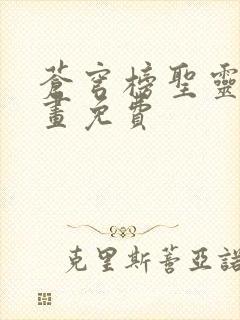 蒼穹榜聖靈
畫免費
克里斯蒂亞諾